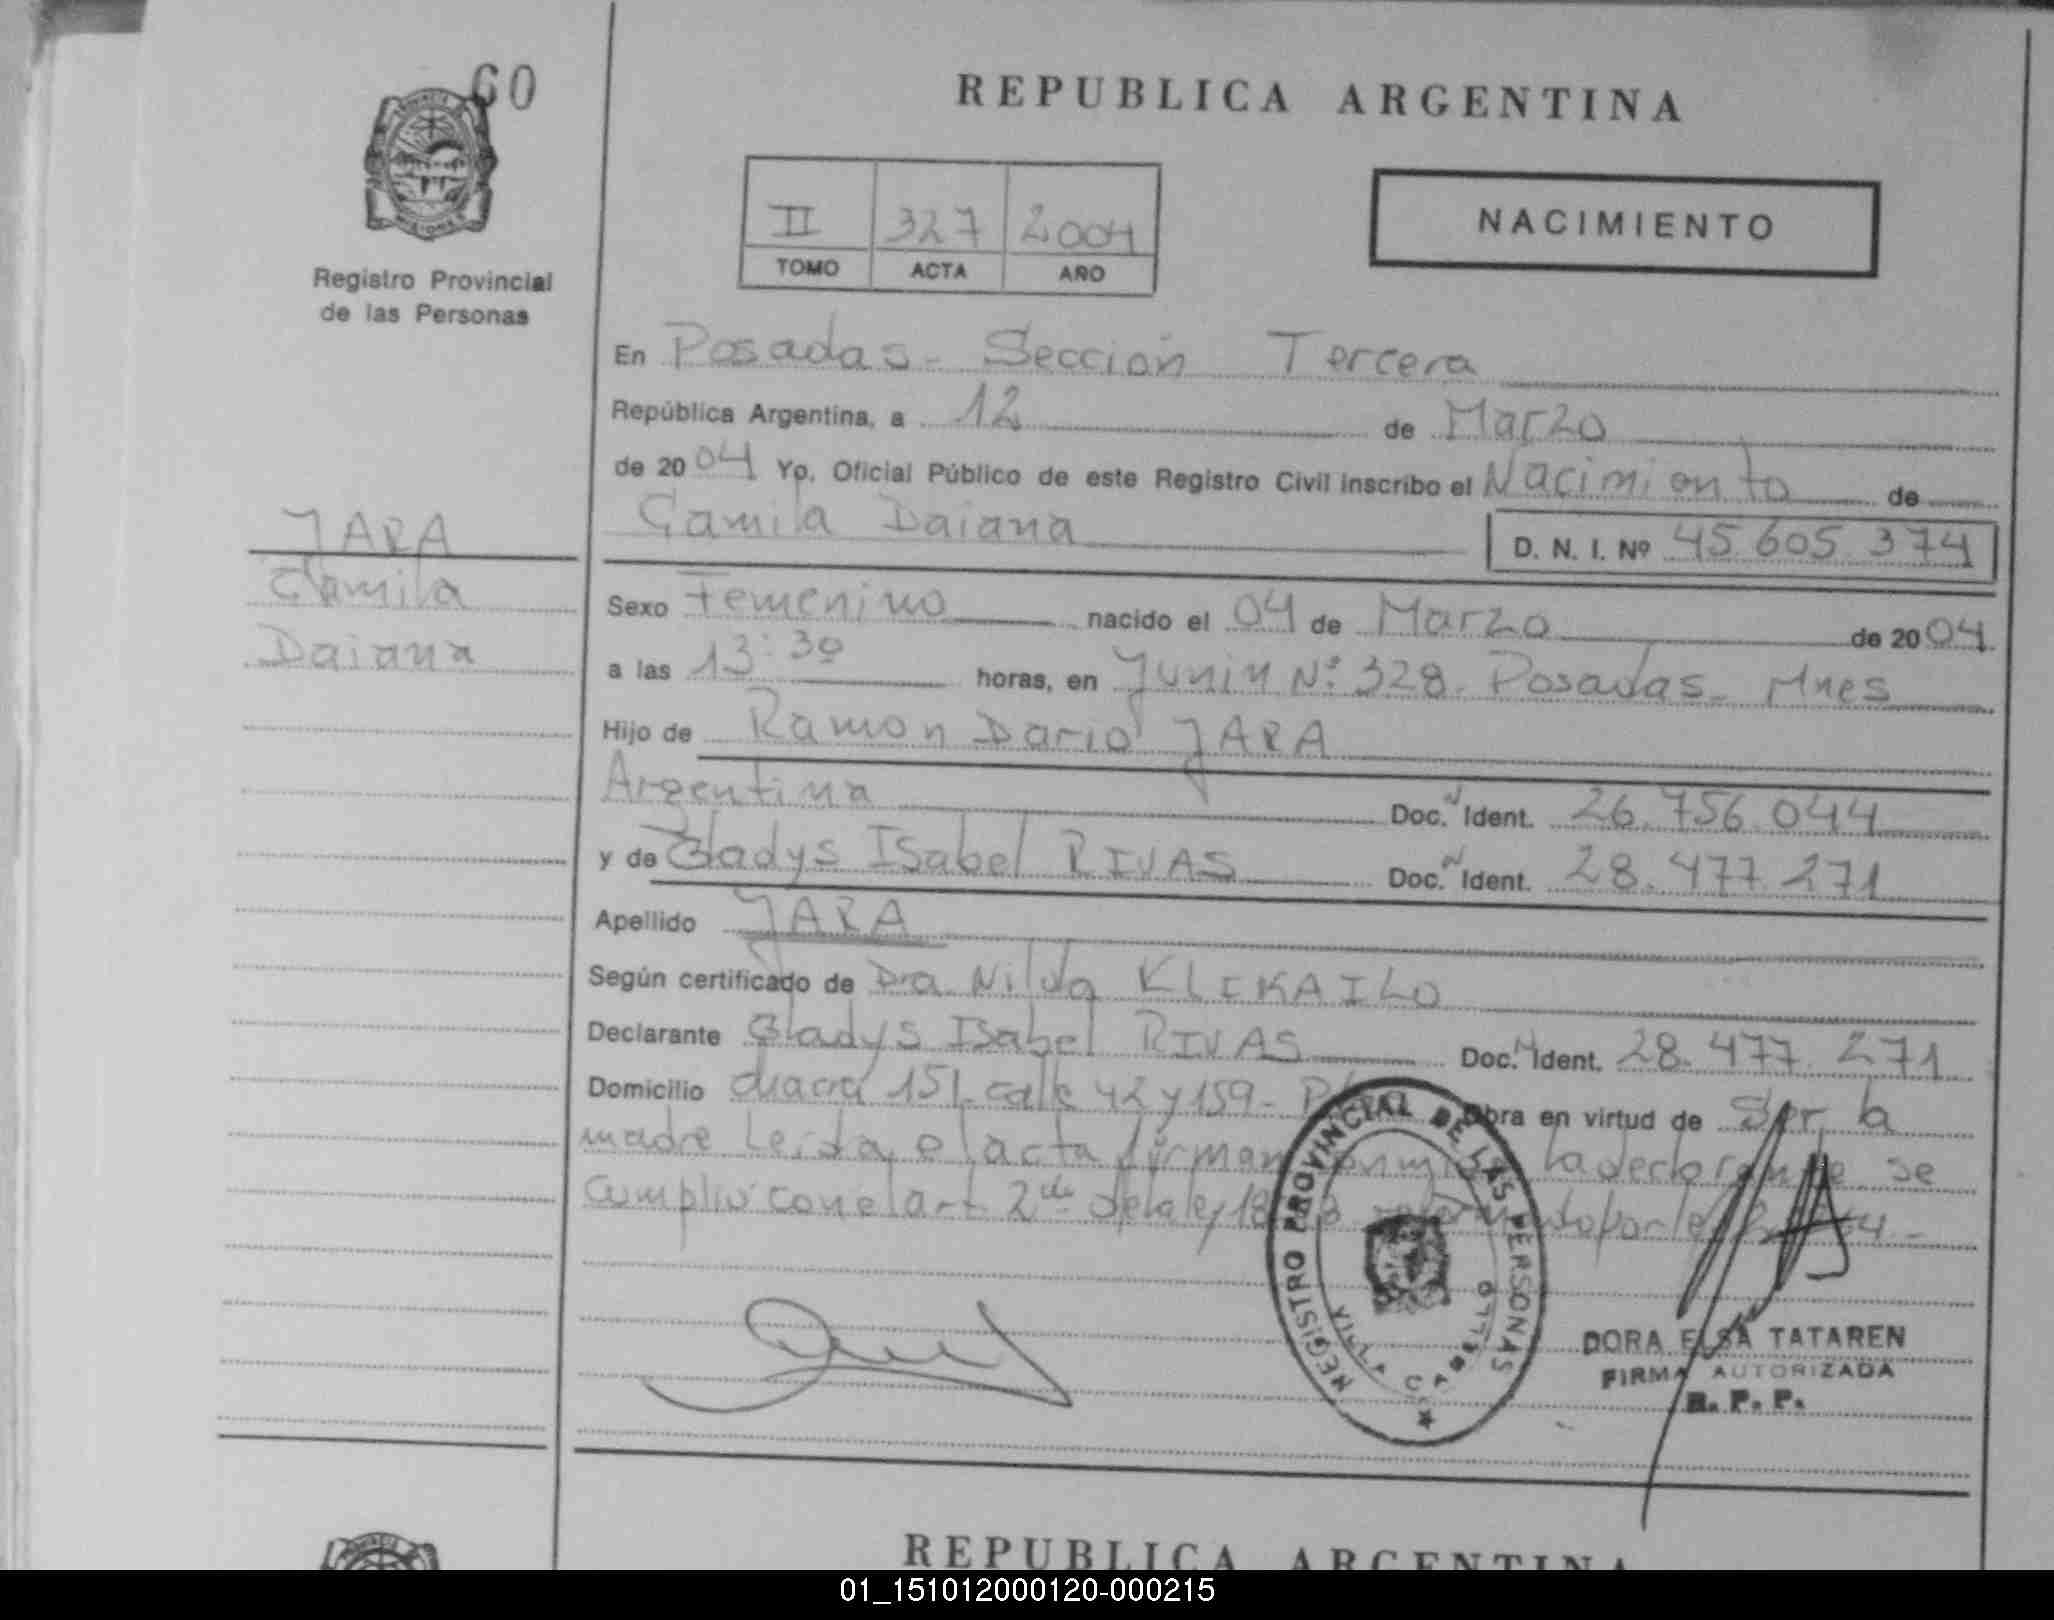 60
REPUBLICA ARGENTINA
II 327 2004
TOMO ACTA AÑO
NACIMIENTO
Registro Provincial
de las Personas
En Posadas - Sección Tercera
República Argentina, a 12 de Marzo
de 2004 Yo, Oficial Público de este Registro Civil inscribo el Nacimiento de
Camila Daiana D. N. I. Nº 45.605.374
JARA
Camila
Daiana
Sexo Femenino nacido el 04 de Marzo de 2004
a las 13:30 horas, en Junin Nº 328. Posadas - Mnes
Hijo de Ramon Dario JARA
Argentina Doc. Ident. 26.756.044
y de Gladys Isabel RIVAS Doc. Ident. 28.477.271
Apellido JARA
Según certificado de Dra Nilda KLEKAILO
Declarante Gladys Isabel RIVAS Doc. Ident. 28.477.271
Domicilio chacra 151 - calle 42 y 159 - Obra en virtud de Ser la
madre Leida el acta firman la declarante se
cumplio con el art 2do de la ley
REGISTRO PROVINCIAL DE LAS PERSONAS
VILLA CABELLO
DORA ELSA TATAREN
FIRMA AUTORIZADA
R. P. P.
REPUBLICA ARGENTINA
01_151012000120-000215